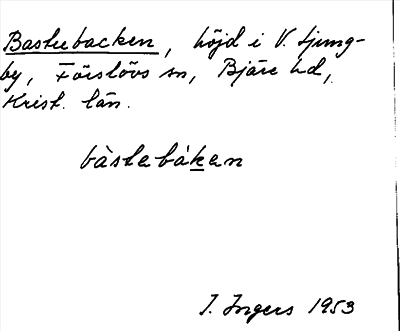 Bastebacken, höjd i V. Ljung-
by, Förslövs sn, Bjäre hd,
Krist. län.
bàstebák̲en
I. Ingers 1953